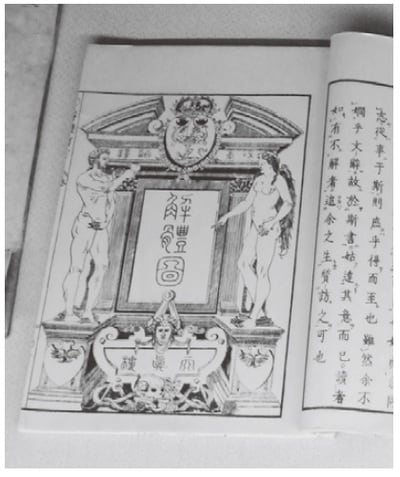 志從事于斯則庶乎得而至也雖然余不
嫺乎文辭故於斯書姑達其意而已讀者
如有不解者逮余之生質訪之可也
解體圖